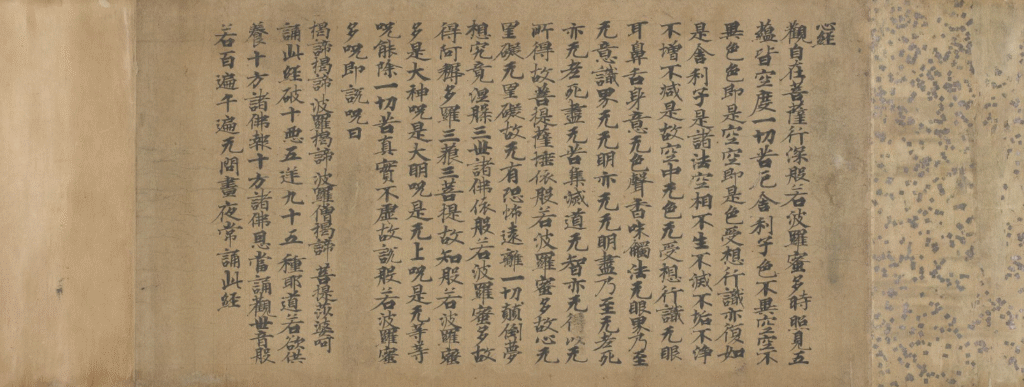 心経
觀自在菩薩行深般若波羅蜜多時照見五
蘊皆空度一切苦厄舍利子色不異空空不
異色色即是空空即是色受想行識亦復如
是舍利子是諸法空相不生不滅不垢不淨
不增不減是故空中无色无受想行識无眼
耳鼻舌身意无色聲香味觸法无眼界乃至
无意識界无无明亦无无明盡乃至无老死
亦无老死盡无苦集滅道无智亦无得以无
所得故菩提薩埵依般若波羅蜜多故心无
罣礙无罣礙故无有恐怖遠離一切顛倒夢
想究竟涅槃三世諸佛依般若波羅蜜多故
得阿耨多羅三藐三菩提故知般若波羅蜜
多是大神呪是大明呪是无上呪是无等等
呪能除一切苦真實不虛故說般若波羅蜜
多呪即說呪曰
揭諦揭諦 波羅揭諦 波羅僧揭諦 菩提莎婆呵
誦此經破十惡五逆九十五種耶道若欲供
養十方諸佛報十方諸佛恩當誦觀世音般
若百遍千遍无問晝夜常誦此經